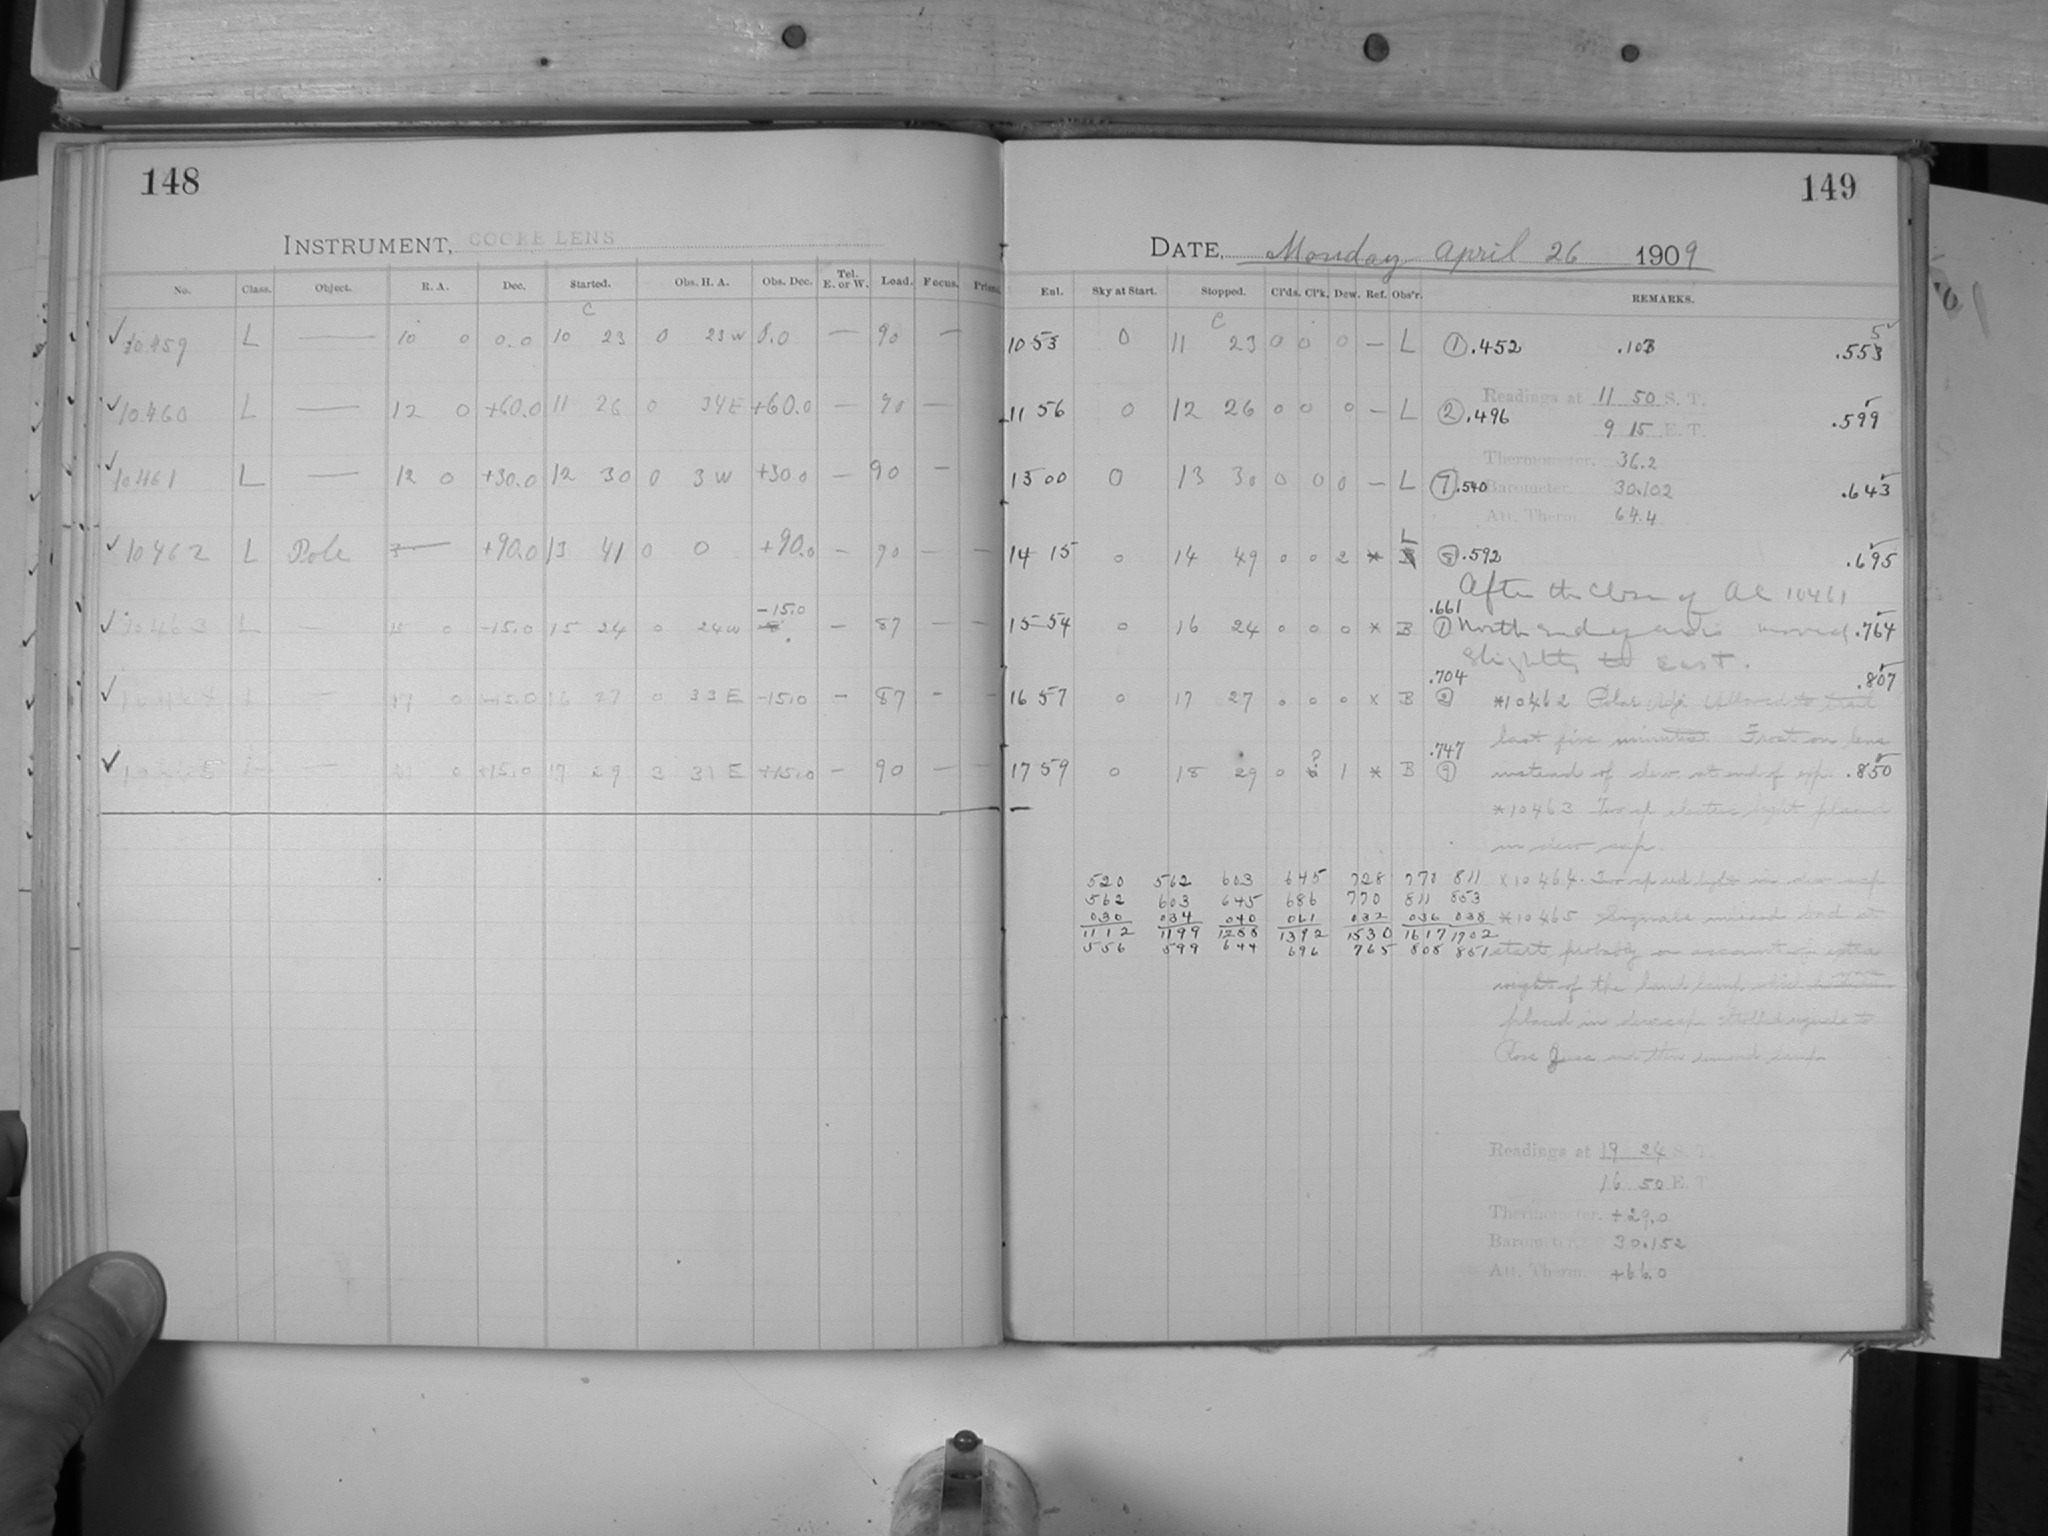 148
INSTRUMENT, COOKE LENS
No. Class. Object. R. A. Dec. Started. Obs. H. A. Obs. Dec. Tel. E. or W. Load. Focus. Prism.
C
10459 L — 10 0 0.0 10 23 0 23 W 0.0 — 90 —
10460 L — 12 0 +60.0 11 26 0 34 E +60.0 — 90 —
10461 L — 12 0 +30.0 12 30 0 3 W +30.0 — 90 —
10462 L Pole — +90.0 13 41 0 0 +90.0 — 90 — —
10463 L — 15 0 -15.0 15 24 0 24 W -15.0 — 87 — —
L — 17 0 -15.0 16 27 0 33 E -15.0 — 87 - —
10465 L — 21 0 +15.0 17 29 3 31 E +15.0 — 90 — —
149
DATE, Monday April 26 1909
Exl. Sky at Start. Stopped. Cl'ds. Cl'k. Dew. Ref. Obs'r. REMARKS.
C
10 53 0 11 23 0 0 0 — L ① .452 .103 .553 5
Readings at 11 50 S. T.
11 56 0 12 26 0 0 0 — L ② .496 .599
9 15 E. T.
Thermometer. 36.2
13 00 0 13 30 0 0 0 — L ⑦ .540 Barometer. 30.102 .643
Att. Therm. 64.4
14 15 0 14 49 0 0 2 * L ⑧ .592 .695
After the close of AC 10461
.661
15 54 0 16 24 0 0 0 * B ① North end of axis moved .764
slightly to east.
.704 .807
16 57 0 17 27 0 0 0 x B ② *10462 Polar Allowed to trail
last five minutes. Frost on lens
.747
17 59 0 18 29 0 ? 1 * B ⑦ instead of dew at end of exp. .850
*10463 Two cp electric light placed
in dew cap.
520 562 603 645 728 770 811 *10464. Two cp red light in dew cap
562 603 645 686 770 811 853
030 034 040 061 032 036 038 *10465 Signals missed bad at
1112 1199 1288 1392 1530 1617 1702
556 599 644 696 765 808 851 start probably on account of extra
weight of the hand lamp which
placed in dewcap. signals to
and then removed lamp.
Readings at 19 24 S. T.
16 50 E. T.
Thermometer. +29.0
Barometer. 30.152
Att. Therm. +66.0